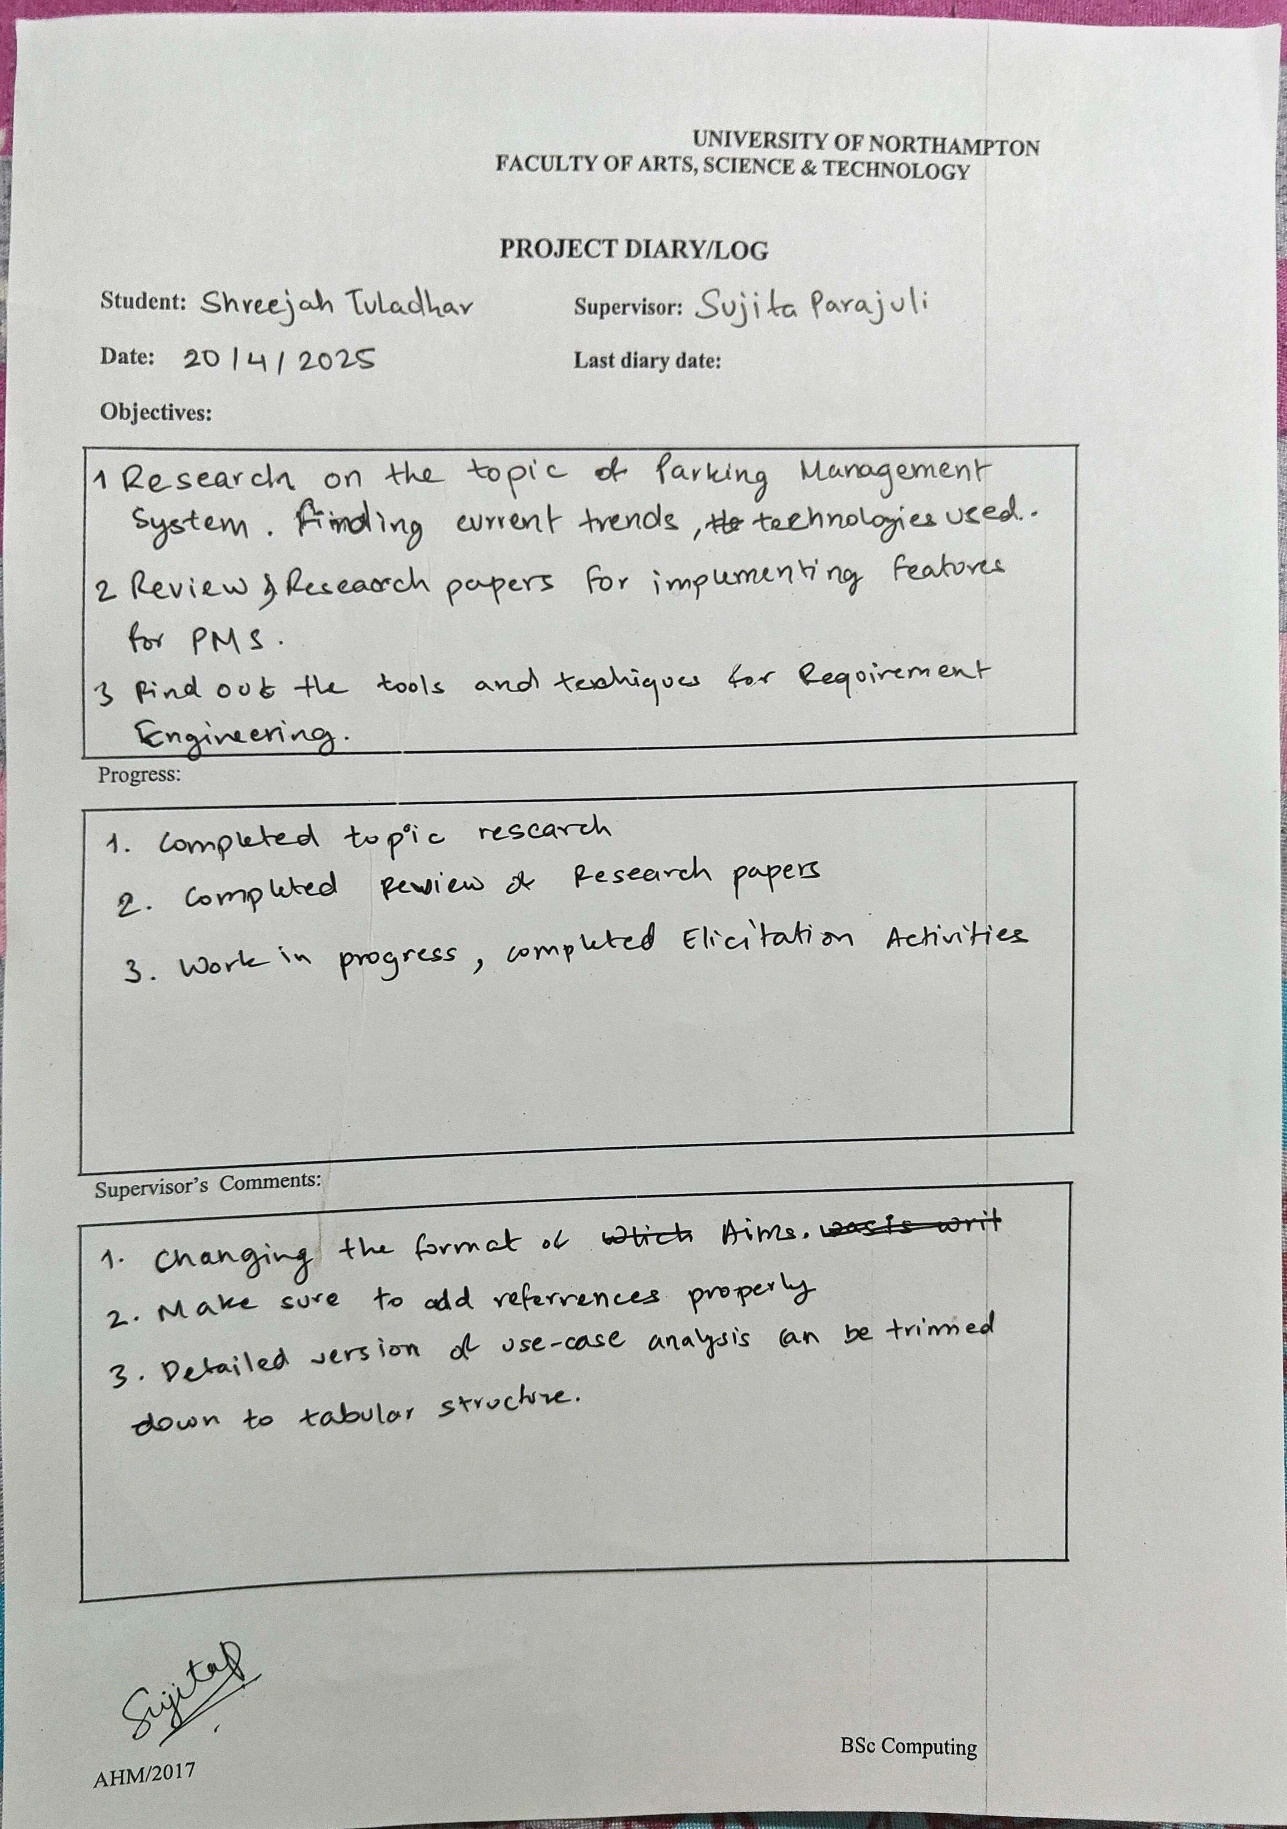 UNIVERSITY OF NORTHAMPTON
FACULTY OF ARTS, SCIENCE & TECHNOLOGY
PROJECT DIARY/LOG
Student: Shreejah Tuladhar Supervisor: Sujita Parajuli
Date: 20/4/2025 Last diary date:
Objectives:
1 Research on the topic of Parking Management
System. Finding current trends, technologies used.
2 Review & Research papers for implementing features
for PMS.
3 Find out the tools and techiques for Requirement
Engineering.
Progress:
1. Completed topic research
2. Completed Review of Research papers
3. Work in progress, completed Elicitation Activities
Supervisor's Comments:
1. Changing the format of which Aims. writ
2. Make sure to add referrences properly
3. Detailed version of use-case analysis can be trimmed
down to tabular structure.
SujitaP
AHM/2017 BSc Computing